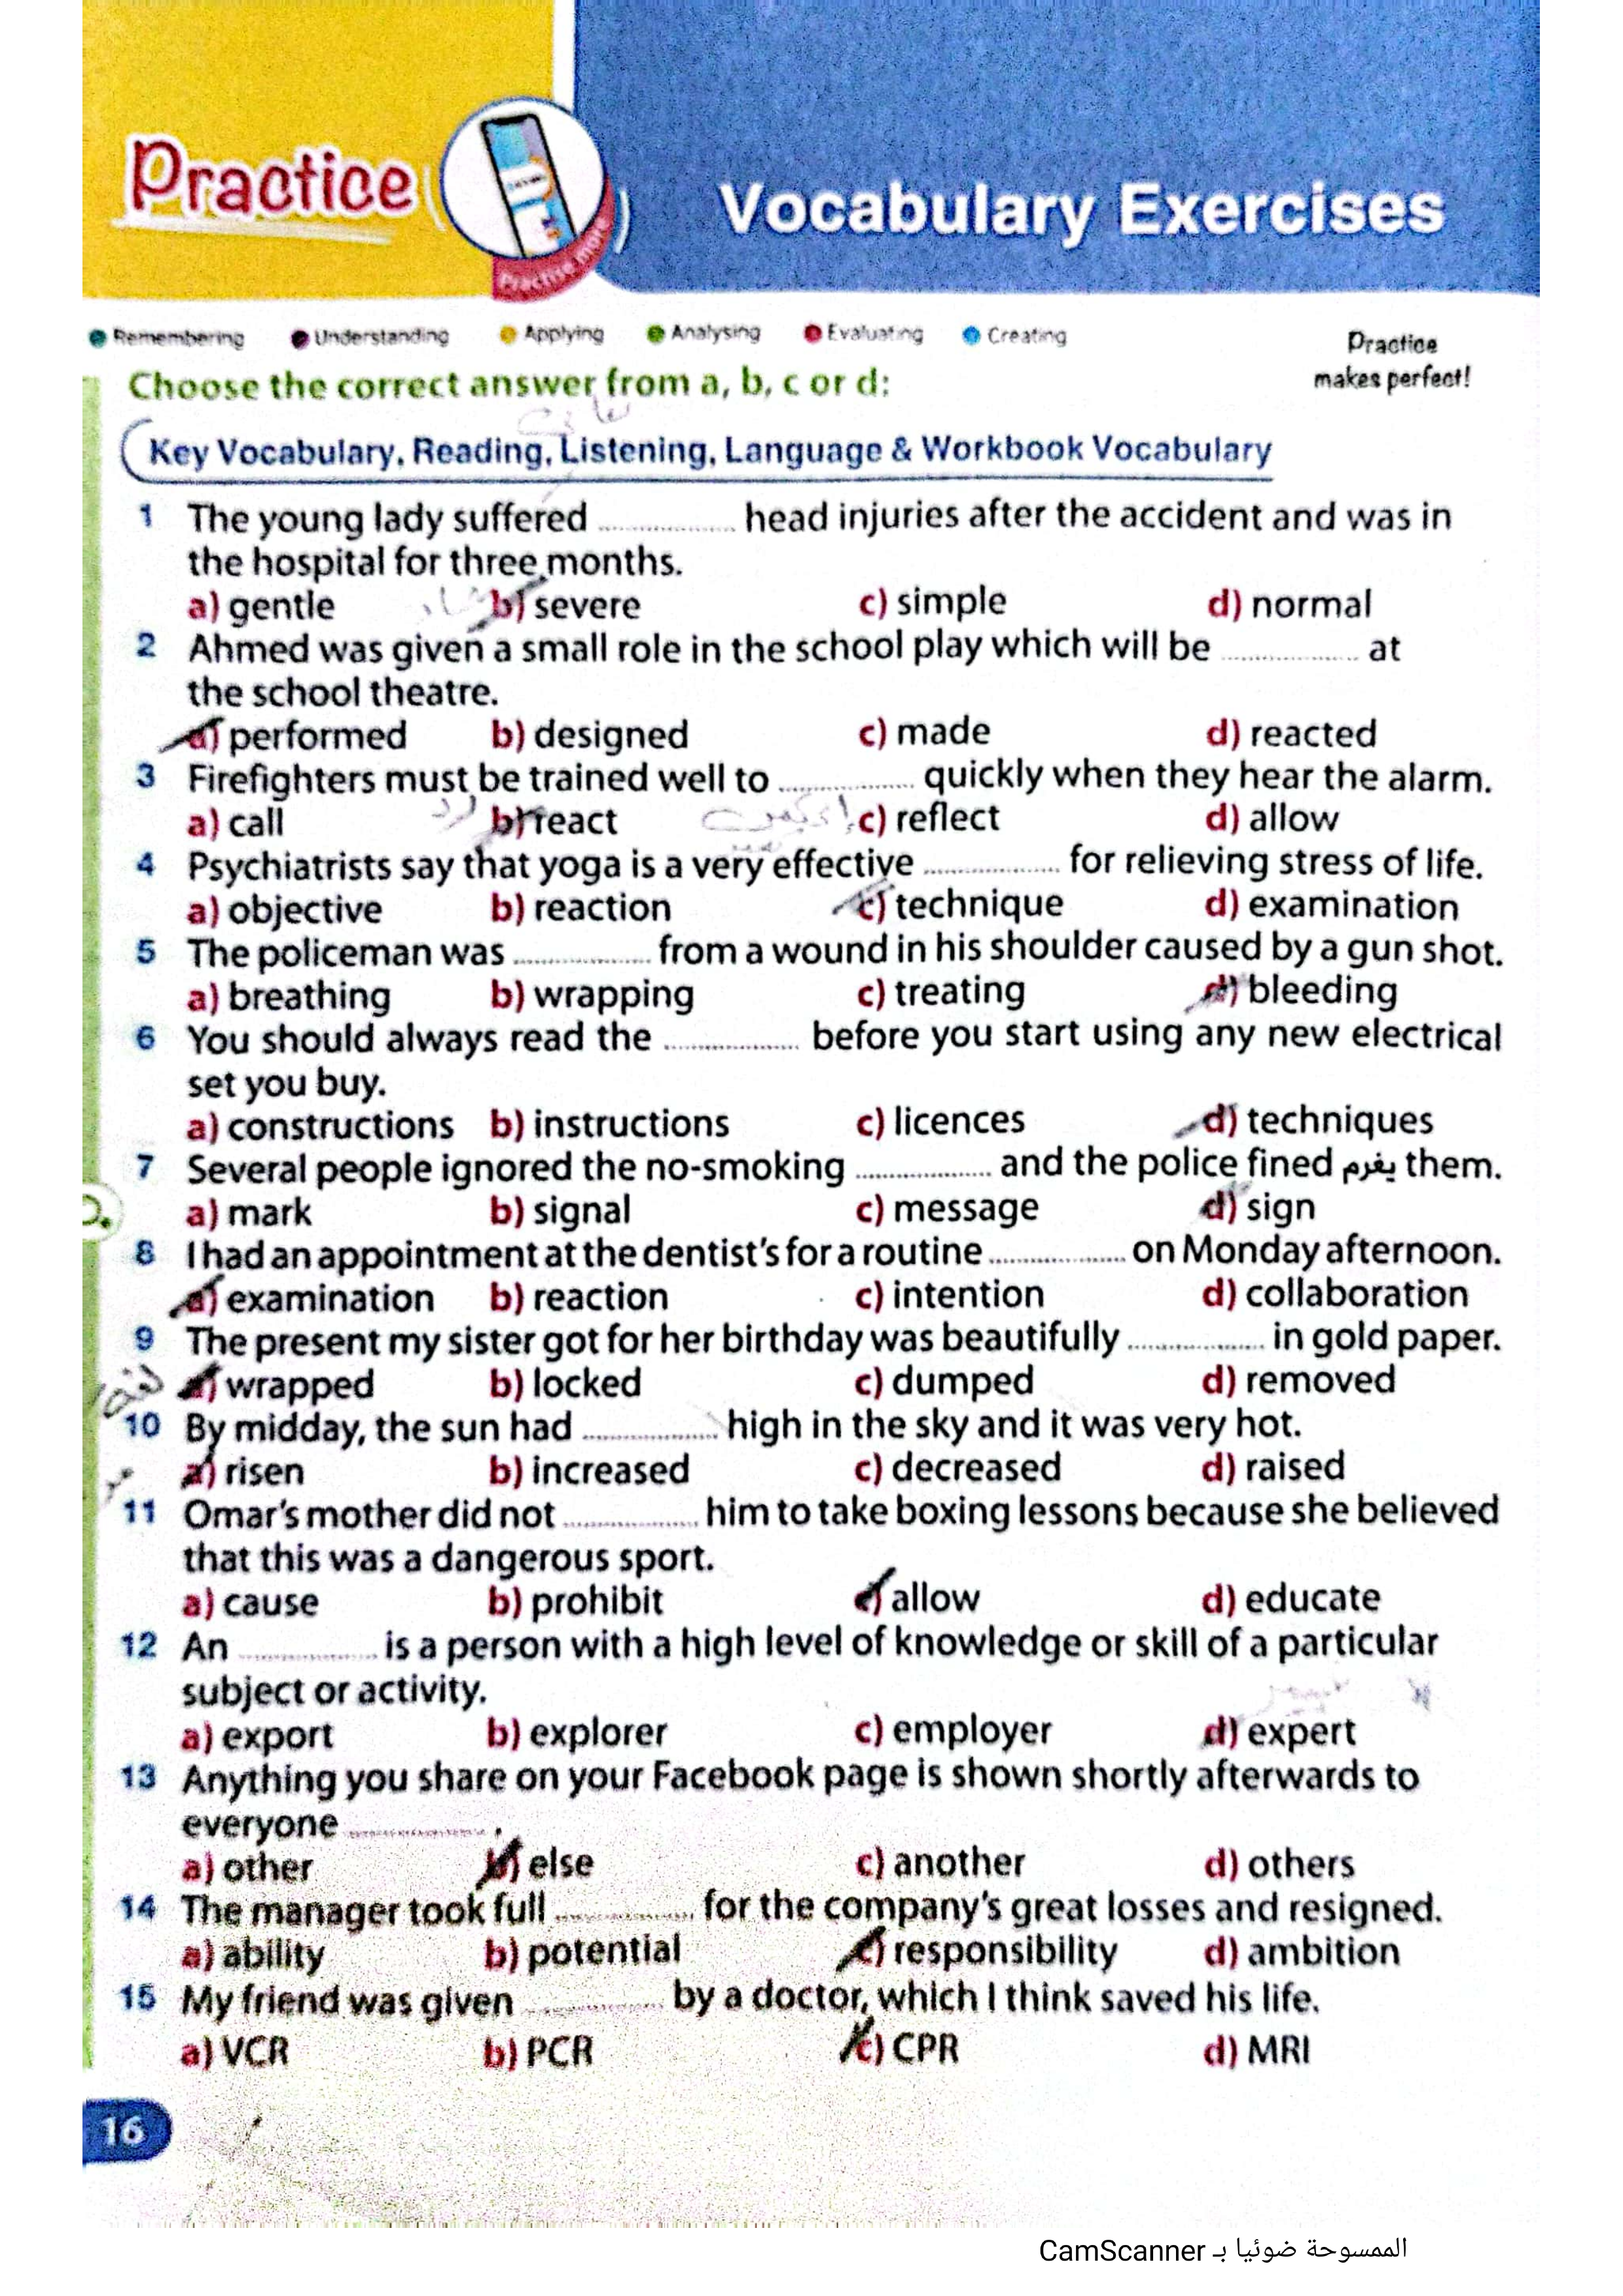 Practice
Practise more
Vocabulary Exercises
Remembering Understanding Applying Analysing Evaluating Creating
Practice
makes perfect!
Choose the correct answer from a, b, c or d:
Key Vocabulary, Reading, Listening, Language & Workbook Vocabulary
1 The young lady suffered ............... head injuries after the accident and was in
the hospital for three months.
a) gentle b) severe c) simple d) normal
2 Ahmed was given a small role in the school play which will be ............... at
the school theatre.
a) performed b) designed c) made d) reacted
3 Firefighters must be trained well to ............... quickly when they hear the alarm.
a) call b) react c) reflect d) allow
4 Psychiatrists say that yoga is a very effective ............... for relieving stress of life.
a) objective b) reaction c) technique d) examination
5 The policeman was ............... from a wound in his shoulder caused by a gun shot.
a) breathing b) wrapping c) treating d) bleeding
6 You should always read the ............... before you start using any new electrical
set you buy.
a) constructions b) instructions c) licences d) techniques
7 Several people ignored the no-smoking ............... and the police fined يغرم them.
a) mark b) signal c) message d) sign
8 I had an appointment at the dentist's for a routine ............... on Monday afternoon.
a) examination b) reaction c) intention d) collaboration
9 The present my sister got for her birthday was beautifully ............... in gold paper.
a) wrapped b) locked c) dumped d) removed
10 By midday, the sun had ............... high in the sky and it was very hot.
a) risen b) increased c) decreased d) raised
11 Omar's mother did not ............... him to take boxing lessons because she believed
that this was a dangerous sport.
a) cause b) prohibit c) allow d) educate
12 An ............... is a person with a high level of knowledge or skill of a particular
subject or activity.
a) export b) explorer c) employer d) expert
13 Anything you share on your Facebook page is shown shortly afterwards to
everyone ............... .
a) other b) else c) another d) others
14 The manager took full ............... for the company's great losses and resigned.
a) ability b) potential c) responsibility d) ambition
15 My friend was given ............... by a doctor, which I think saved his life.
a) VCR b) PCR c) CPR d) MRI
16
الممسوحة ضوئيا بـ CamScanner